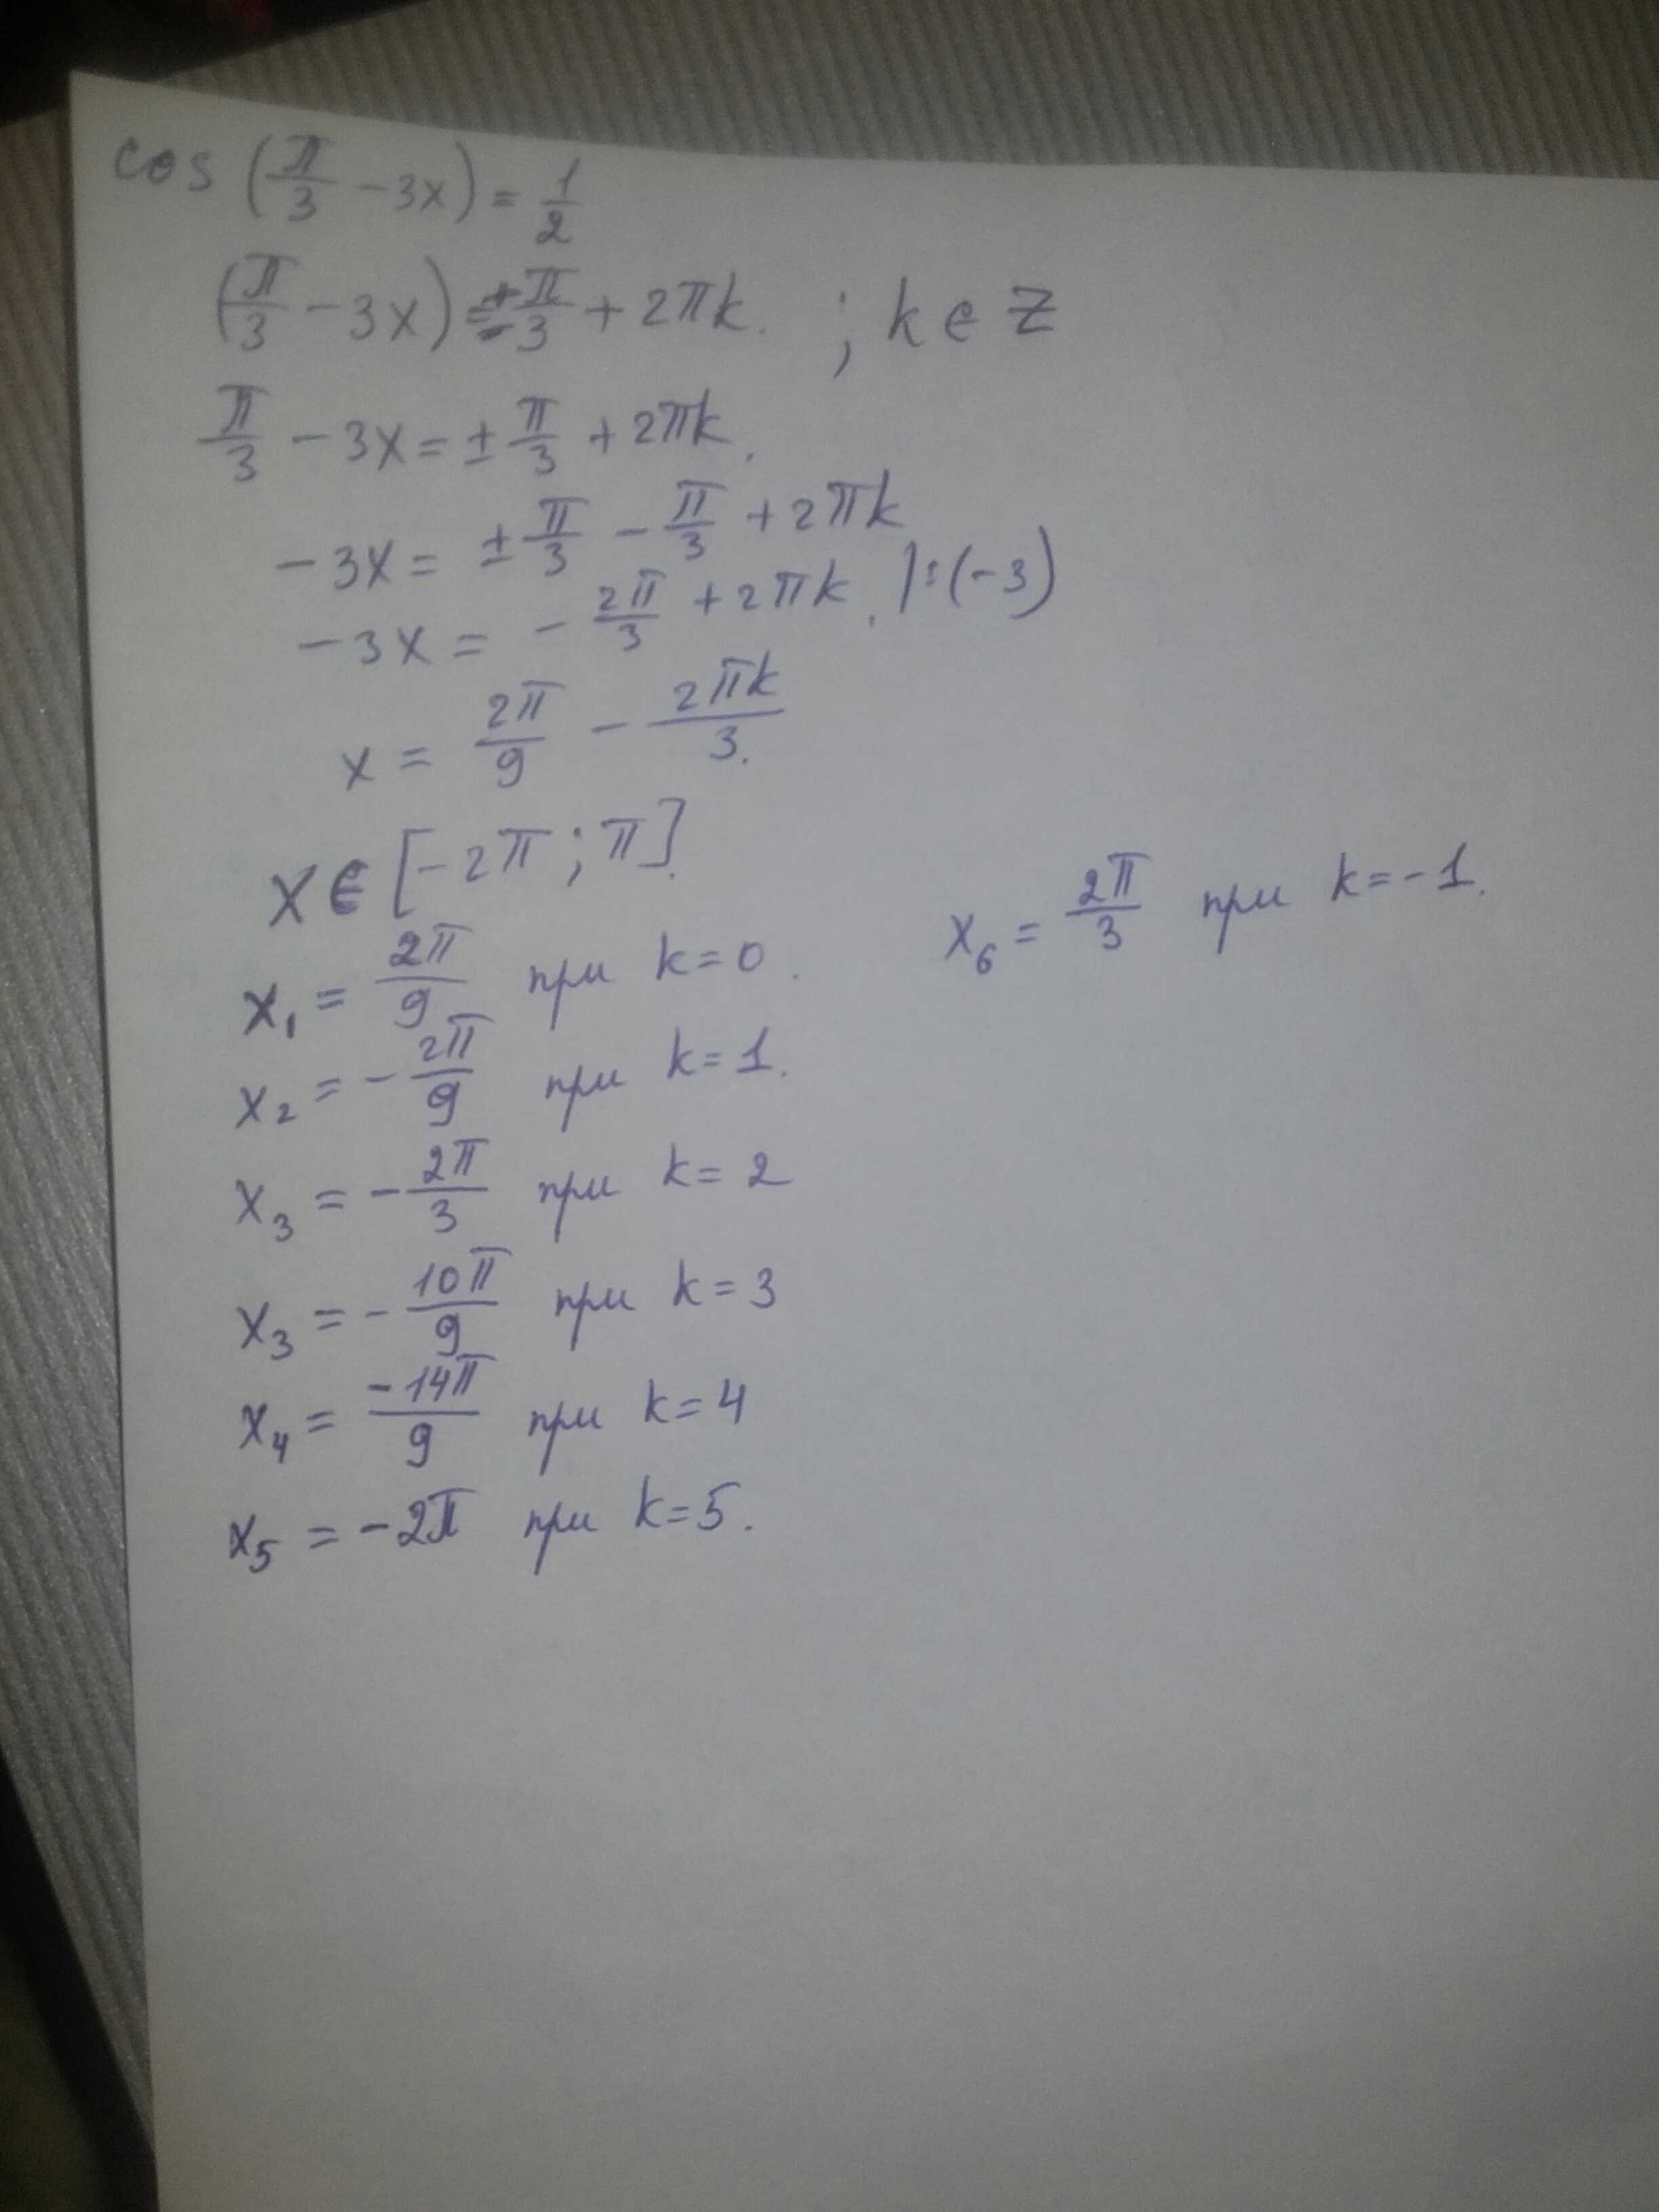 cos (π/3 - 3x) = 1/2
(π/3 - 3x) = ± π/3 + 2πk. ; k ∈ Z
π/3 - 3x = ± π/3 + 2πk.
-3x = ± π/3 - π/3 + 2πk
-3x = - 2π/3 + 2πk. |:(-3)
x = 2π/9 - 2πk/3.
x ∈ [-2π; π].
x₁ = 2π/9 при k=0.
x₂ = - 2π/9 при k=1.
x₃ = - 2π/3 при k=2
x₃ = - 10π/9 при k=3
x₄ = -14π/9 при k=4
x₅ = -2π при k=5.
x₆ = 2π/3 при k=-1.